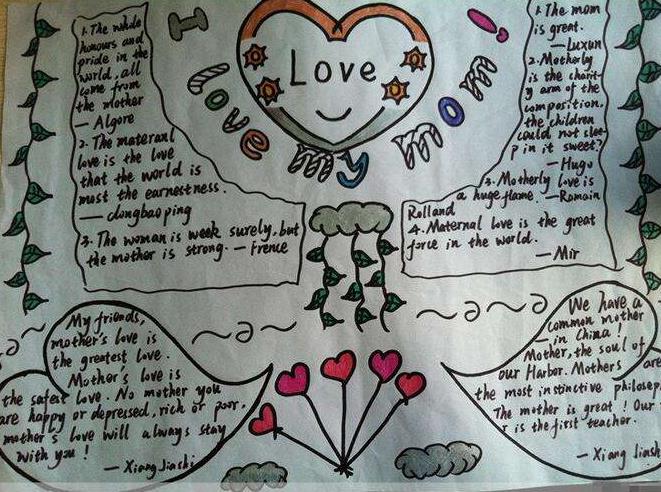 I love my mom!
Love
1. The whole
honours and
pride in the
world, all
come from
the mother
— Algore
2. The materanl
love is the love
that the world is
most the earnestness.
— dongbaoping
3. The woman is week surely, but
the mother is strong. — Frence
1. The mom
is great.
— Luxun
2. Motherly
is the charit-
y arm of the
composition.
the children
could not slee-
p in it sweet?
— Hugo
3. Motherly love is
a huge flame. — Romain
Rolland
4. Maternal love is the great
force in the world.
— Mir
My friends,
mother's love is
the greatest love.
Mother's love is
the safest love. No matter you
are happy or depressed, rich or poor.
mother's love will always stay
with you!
— Xiang Jiashi
We have a
common mother
— in China!
Mother, the soul of
our Harbor. Mothers are
the most instinctive philosop
The mother is great! Our
is the first teacher.
— Xiang Jiash